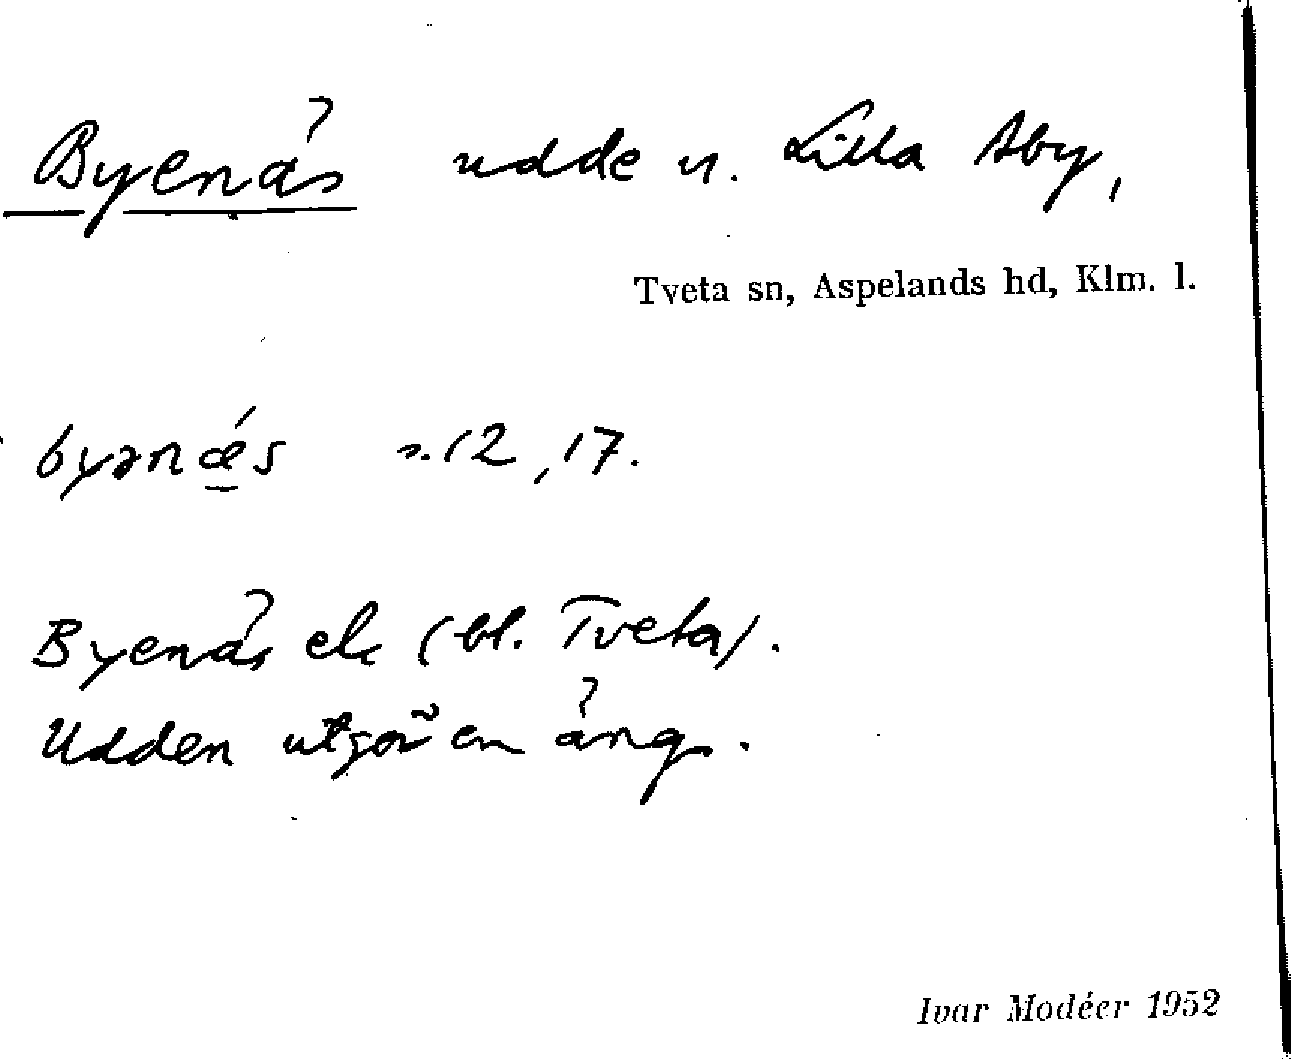 Byenäs udde u. Lilla Aby,
Tveta sn, Aspelands hd, Klm. l.
byənǽs s. 12, 17.
Byenäs ek (bl. Tveta).
Udden utgör en äng.
Ivar Modéer 1952